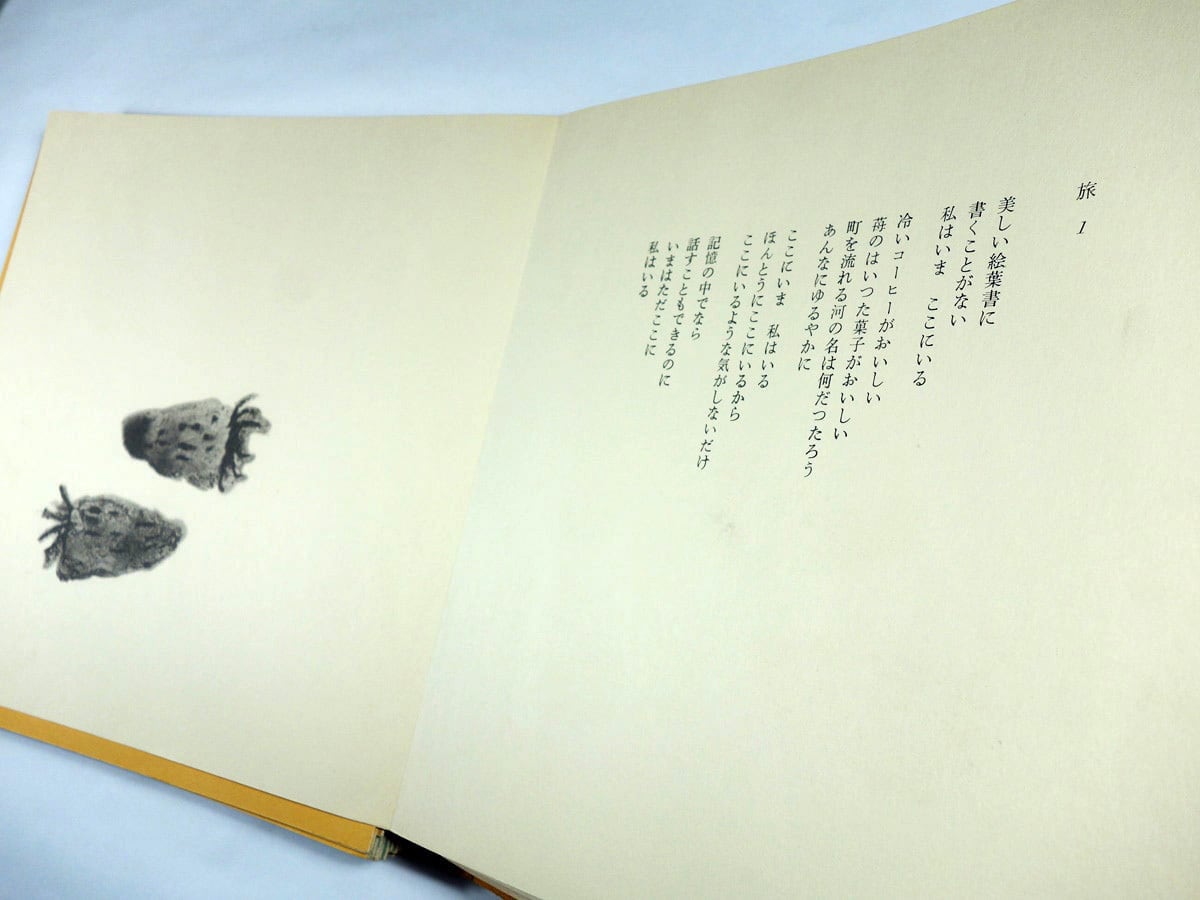 旅 1
美しい絵葉書に
書くことがない
私はいま ここにいる
冷いコーヒーがおいしい
苺のはいつた菓子がおいしい
町を流れる河の名は何だつたろう
あんなにゆるやかに
ここにいま 私はいる
ほんとうにここにいるから
ここにいるような気がしないだけ
記憶の中でなら
話すこともできるのに
いまはただここに
私はいる